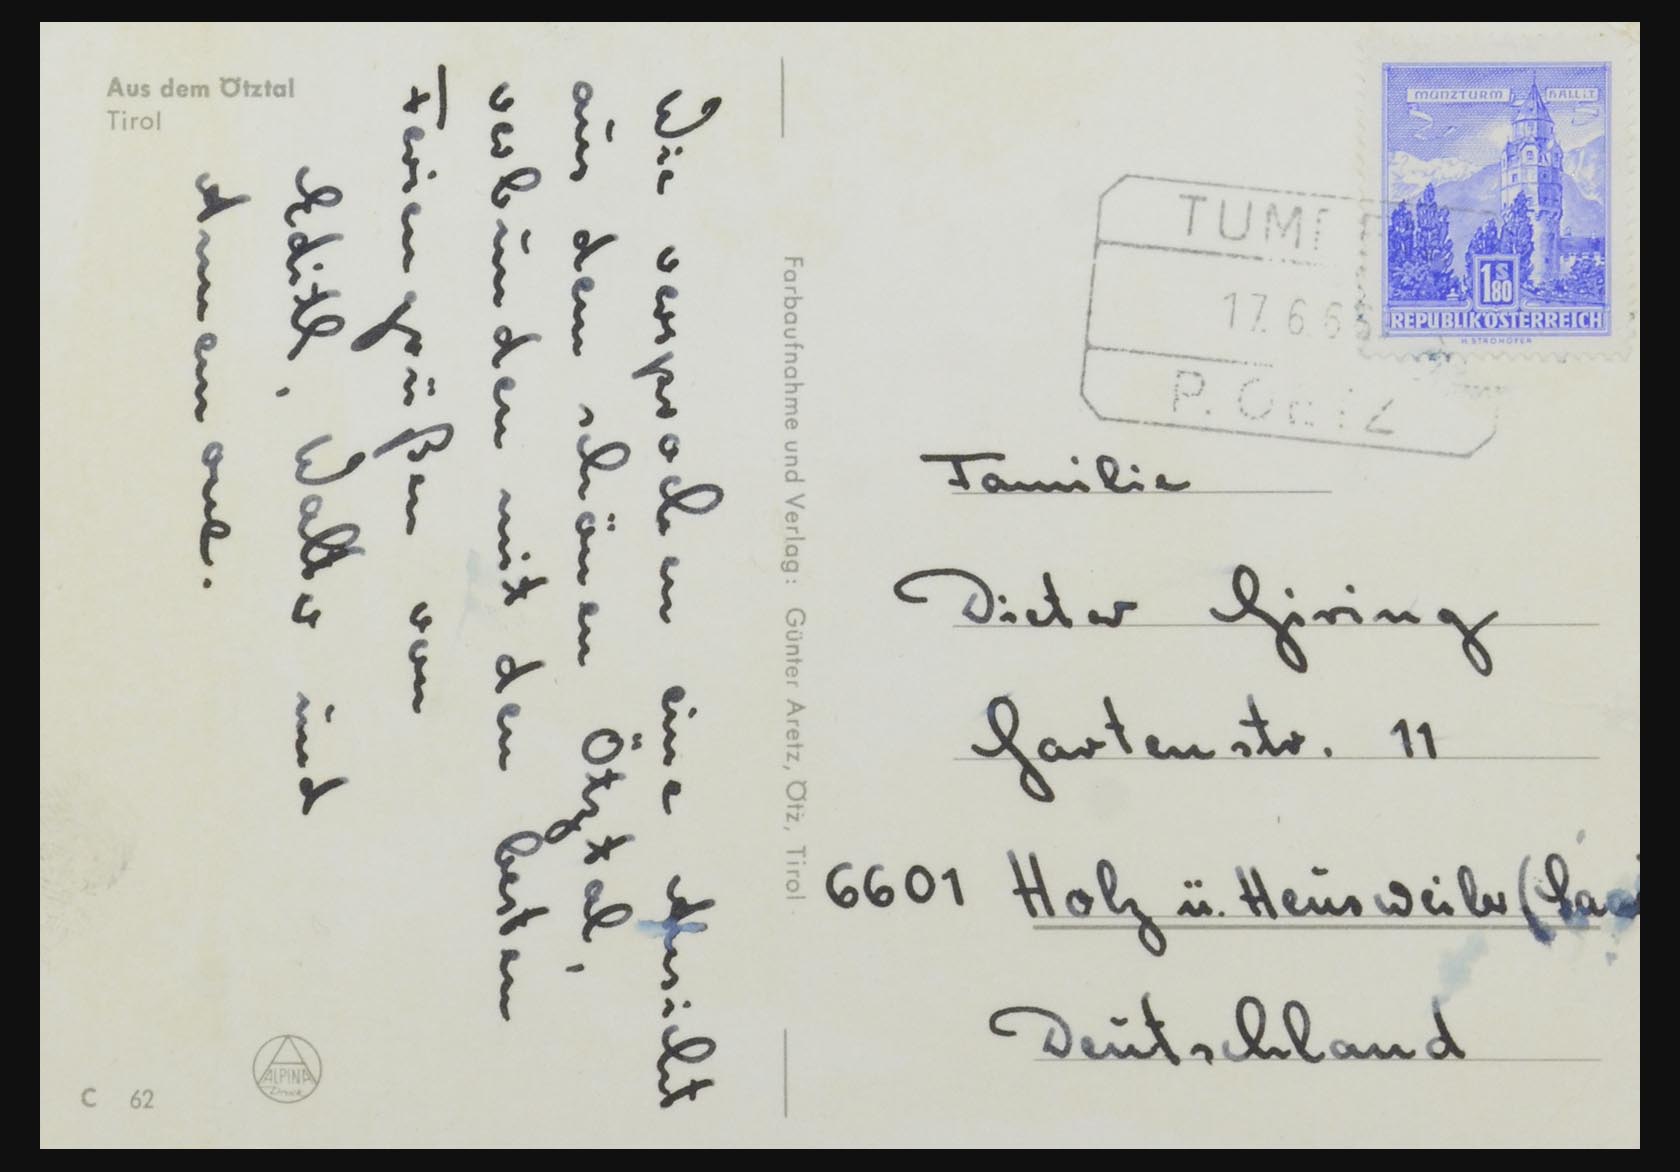 Aus dem Ötztal
Tirol
Wie versprochen eine Ansicht
aus dem schönen Ötztal,
verbunden mit den besten
Feriengrüßen von
Edith, Walter und
Annemarie.
Farbaufnahme und Verlag: Günter Aretz, Ötz, Tirol
C 62
ALPINA
Druck
MÜNZTURM HALL i.T.
S
1.80
REPUBLIK ÖSTERREICH
H. STROHOFER
17. 6. 6
P. Oetz
Familie
Dieter Giring
Gartenstr. 11
6601 Holz ü. Heusweiler (Saa
Deutschland